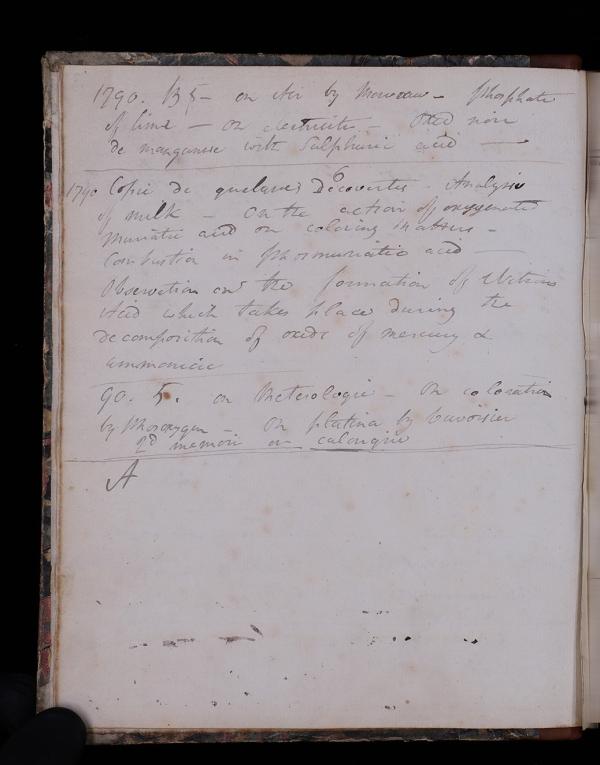 1790. B 5 - on Air by Morveau - Phosphate
of lime - on electricité - Oxid noir
de manganese with Sulphuric acid -
1790 Copie de quelques Découvertes - Analysis
of milk - On the action of oxygenated
muriatic acid on coloring
Combustion in Phosmuriatic acid -
Observation on the formation of Nitrous
Acid which takes place during the
decomposition of oxide of mercury &
ammoniac
90. 5. on Meterologie - On coloration
by Phosoxygen On platina by Lavoisier
2d memoir on calorique
A